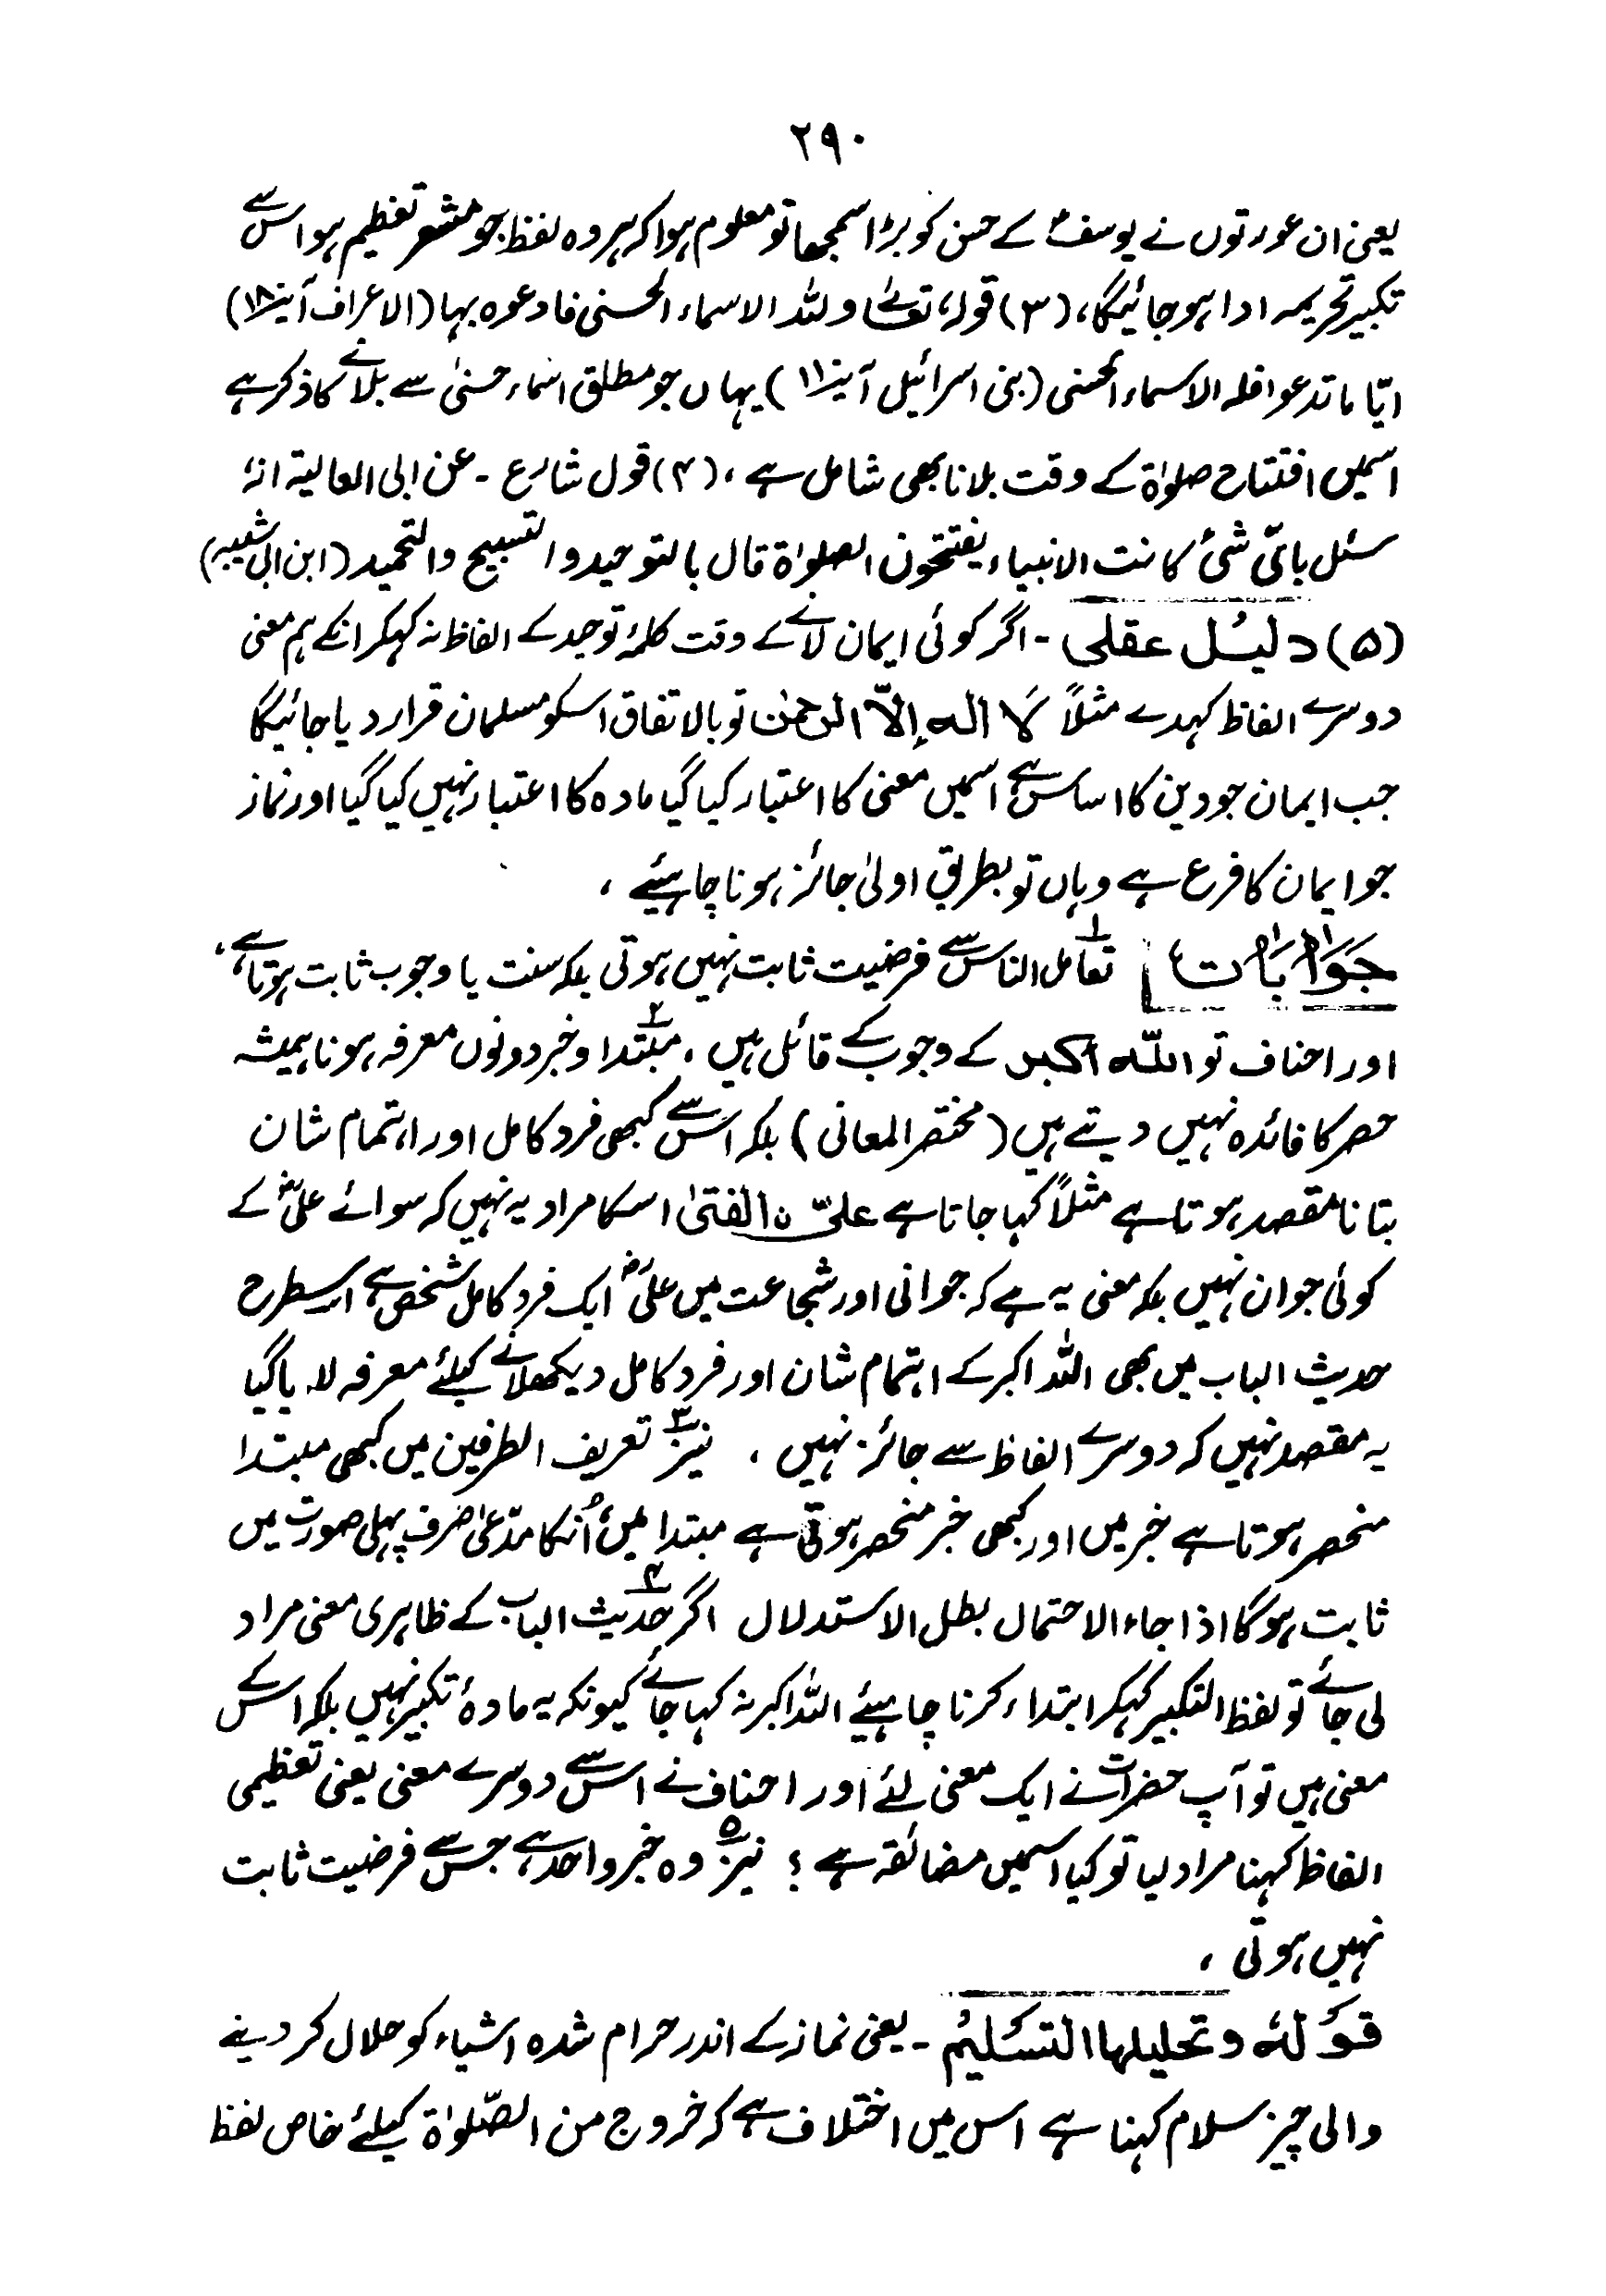 ۲۹۰
یعنی ان عورتوں نے یوسفؑ کے حسن کو بڑا سمجھا تو معلوم ہوا کہ ہر وہ لفظ جو مشعر تعظیم ہو اس سے
تکبیر تحریمہ ادا ہو جائیگا، (۳) قولہ تعالیٰ وللہ الاسماء الحسنی فادعوہ بہا (الاعراف آیۃ ۱۸)
ایّا ما تدعوا فلہ الاسماء الحسنی (بنی اسرائیل آیۃ ۱۱) یہاں جو مطلق اسماء حسنیٰ سے بلانے کا ذکر ہے
اسمیں افتتاح صلوٰۃ کے وقت بلانا بھی شامل ہے، (۴) قول شارع ۔ عن ابی العالیۃ انہ
سئل بایّ شئ کانت الانبیاء یفتتحون الصلوٰۃ قال بالتوحید والتسبیح والتحمید (ابن ابی شیبہ)
(۵) دلیل عقلی ۔ اگر کوئی ایمان لانے کے وقت کلمۂ توحید کے الفاظ نہ کہکر انکے ہم معنی
دوسرے الفاظ کہدے مثلاً لَا الٰہ إلّا الرحمٰن تو بالاتفاق اسکو مسلمان قرار دیا جائیگا
جب ایمان جو دین کا اساس ہے اسمیں معنی کا اعتبار کیا گیا مادہ کا اعتبار نہیں کیا گیا اور نماز
جو ایمان کا فرع ہے وہاں تو بطریق اولیٰ جائز ہونا چاہیئے ،
جَوَابَات ۱؎ تعامل الناس سے فرضیت ثابت نہیں ہوتی بلکہ سنت یا وجوب ثابت ہوتا ہے،
اور احناف تو اللّٰہ اکبر کے وجوب کے قائل ہیں ، ۲؎ مبتدا و خبر دونوں معرفہ ہونا ہمیشہ
حصر کا فائدہ نہیں دیتے ہیں (مختصر المعانی) بلکہ اس سے کبھی فرد کامل اور اہتمام شان
بتانا مقصد ہوتا ہے مثلاً کہا جاتا ہے علیّ ن الفتیٰ اسکا مراد یہ نہیں کہ سوائے علیؓ کے
کوئی جوان نہیں بلکہ معنی یہ ہے کہ جوانی اور شجاعت میں علیؓ ایک فرد کامل شخص ہے اسیطرح
حدیث الباب میں بھی اللہ اکبر کے اہتمام شان اور فرد کامل دیکھلانے کیلئے معرفہ لایا گیا
یہ مقصد نہیں کہ دوسرے الفاظ سے جائز نہیں ، ۳؎ نیز تعریف الطرفین میں کبھی مبتدا
منحصر ہوتا ہے خبر میں اور کبھی خبر منحصر ہوتی ہے مبتدا میں اُنکا مدّعیٰ صرف پہلی صورت میں
ثابت ہوگا اذا جاء الاحتمال بطل الاستدلال ۴؎ اگر حدیث الباب کے ظاہری معنی مراد
لی جائے تو لفظ التکبیر کہکر ابتداء کرنا چاہیئے اللہ اکبر نہ کہا جائے کیونکہ یہ مادۂ تکبیر نہیں بلکہ اس کے
معنی ہیں تو آپ حضرات نے ایک معنی لئے اور احناف نے اس سے دوسرے معنی یعنی تعظیمی
الفاظ کہنا مراد لیا تو کیا اسمیں مضائقہ ہے ؟ ۵؎ نیز وہ خبر واحد ہے جس سے فرضیت ثابت
نہیں ہوتی ،
قولہ وتحلیلها التسلیم ۔ یعنی نماز کے اندر حرام شدہ اشیاء کو حلال کر دینے
والی چیز سلام کہنا ہے اس میں اختلاف ہے کہ خروج من الصّلوٰۃ کیلئے خاص لفظ